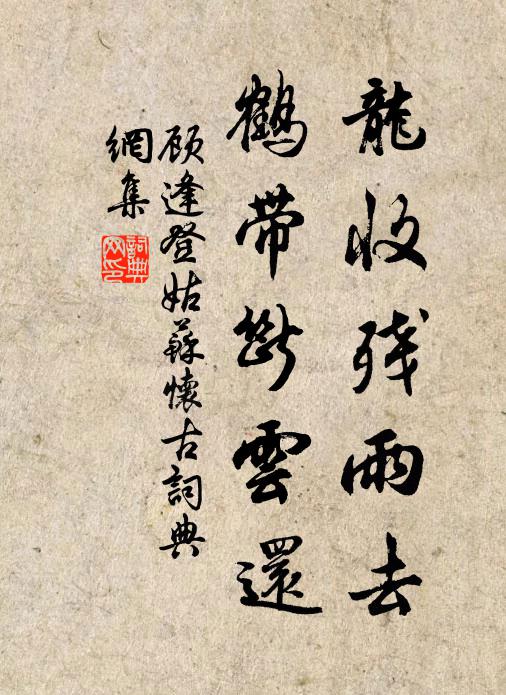 龍收残雨去
鶴带斷雲還
顾逢登姑蘇懷古詞典
網集
詞典
网印